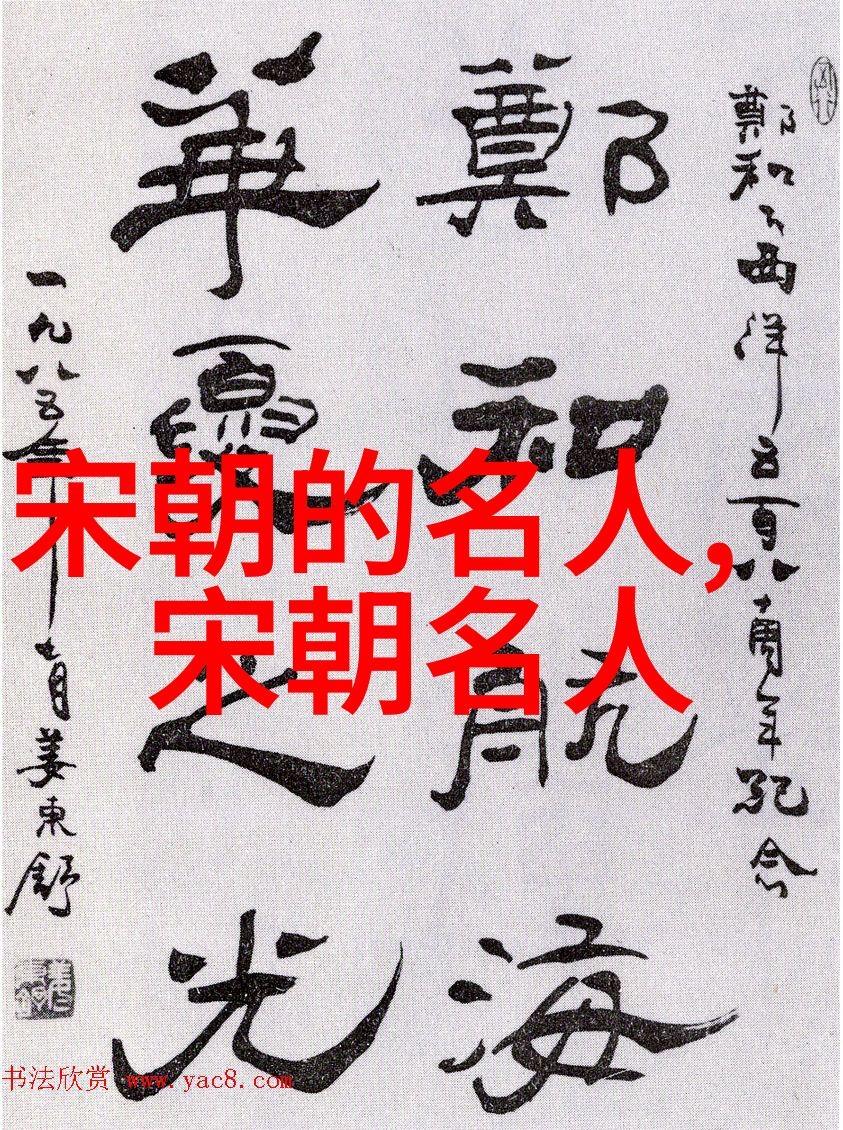 鄭和下西洋五百八十周年纪念
鄭和航海
華夏之光
一九八五年七月姜東舒
宋朝的名人,
宋朝名人
书法欣赏 www.yac8.com